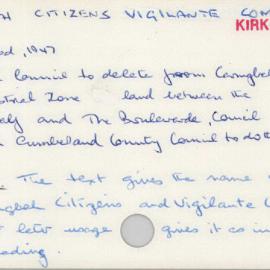 H CITIZENS VIGILANTE COM
KIRK
ed, 1947
Council to delete from Caringba
strial Zone land between the
and The Boulevarde, Council
Cumberland County Council to do
The text gives the name
ngbah Citizens and Vigilante
letr usage gives it as in
eading.